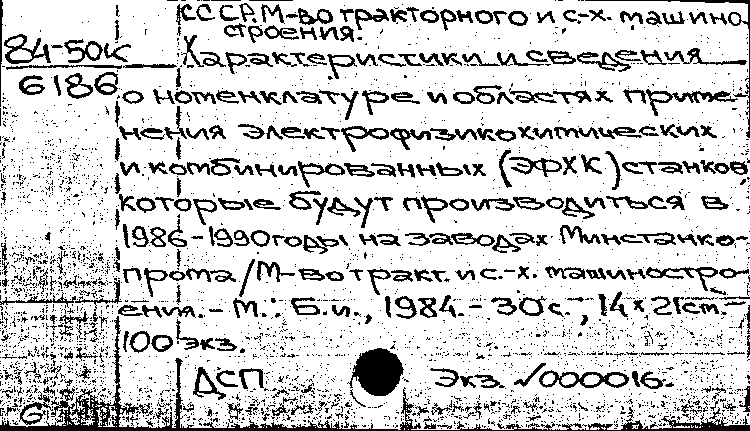 СССР. М-во тракторного и с.-х. машино-
строения.
84-50к
Характеристики и сведения
6186
о номенклатуре и областях приме-
нения электрофизикохимических
и комбинированных (ЭФХК) станков,
которые будут производиться в
1986-1990 годы на заводах Минстанко-
прома / М-во тракт. и с.-х. машиностро-
ения. - М.: Б.и., 1984. - 30 с.; 14×21 cm. -
100 экз.
ДСП Экз. √000016.
6